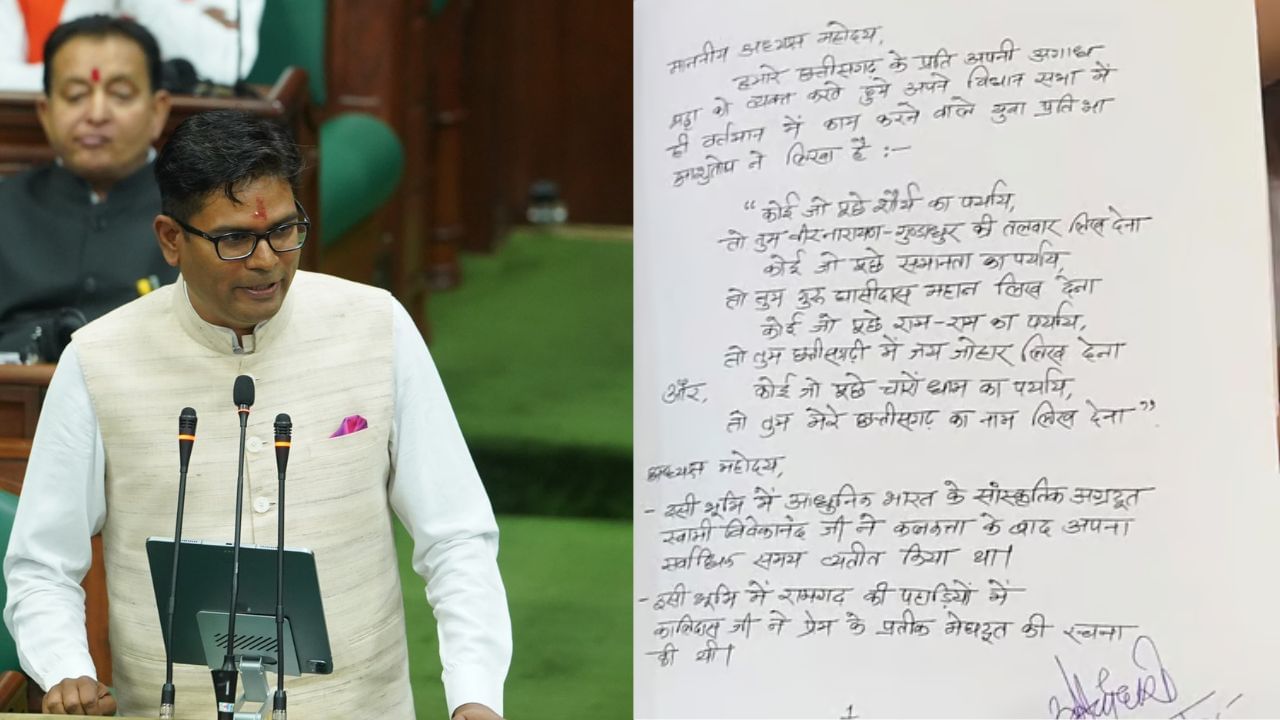 माननीय अध्यक्ष महोदय,
हमारे छत्तीसगढ़ के प्रति अपनी अगाध
श्रद्धा को व्यक्त करते हुये अपने विधान सभा में
ही वर्तमान में काम करने वाले युवा प्रतिभा
आशुतोष ने लिखा है :-
“कोई जो पूछे शौर्य का पर्याय,
तो तुम वीरनारायण-गुण्डाधुर की तलवार लिख देना
कोई जो पूछे समानता का पर्याय,
तो तुम गुरु घासीदास महान लिख देना
कोई जो पूछे राम-राम का पर्याय,
तो तुम छत्तीसगढ़ी में जय जोहार लिख देना
और, कोई जो पूछे चारों धाम का पर्याय,
तो तुम मेरे छत्तीसगढ़ का नाम लिख देना”
अध्यक्ष महोदय,
- इसी भूमि में आधुनिक भारत के सांस्कृतिक अग्रदूत
स्वामी विवेकानंद जी ने कलकत्ता के बाद अपना
सर्वाधिक समय व्यतीत किया था।
- इसी भूमि में रामगढ़ की पहाड़ियों में
कालिदास जी ने प्रेम के प्रतीक मेघदूत की रचना
की थी।
1